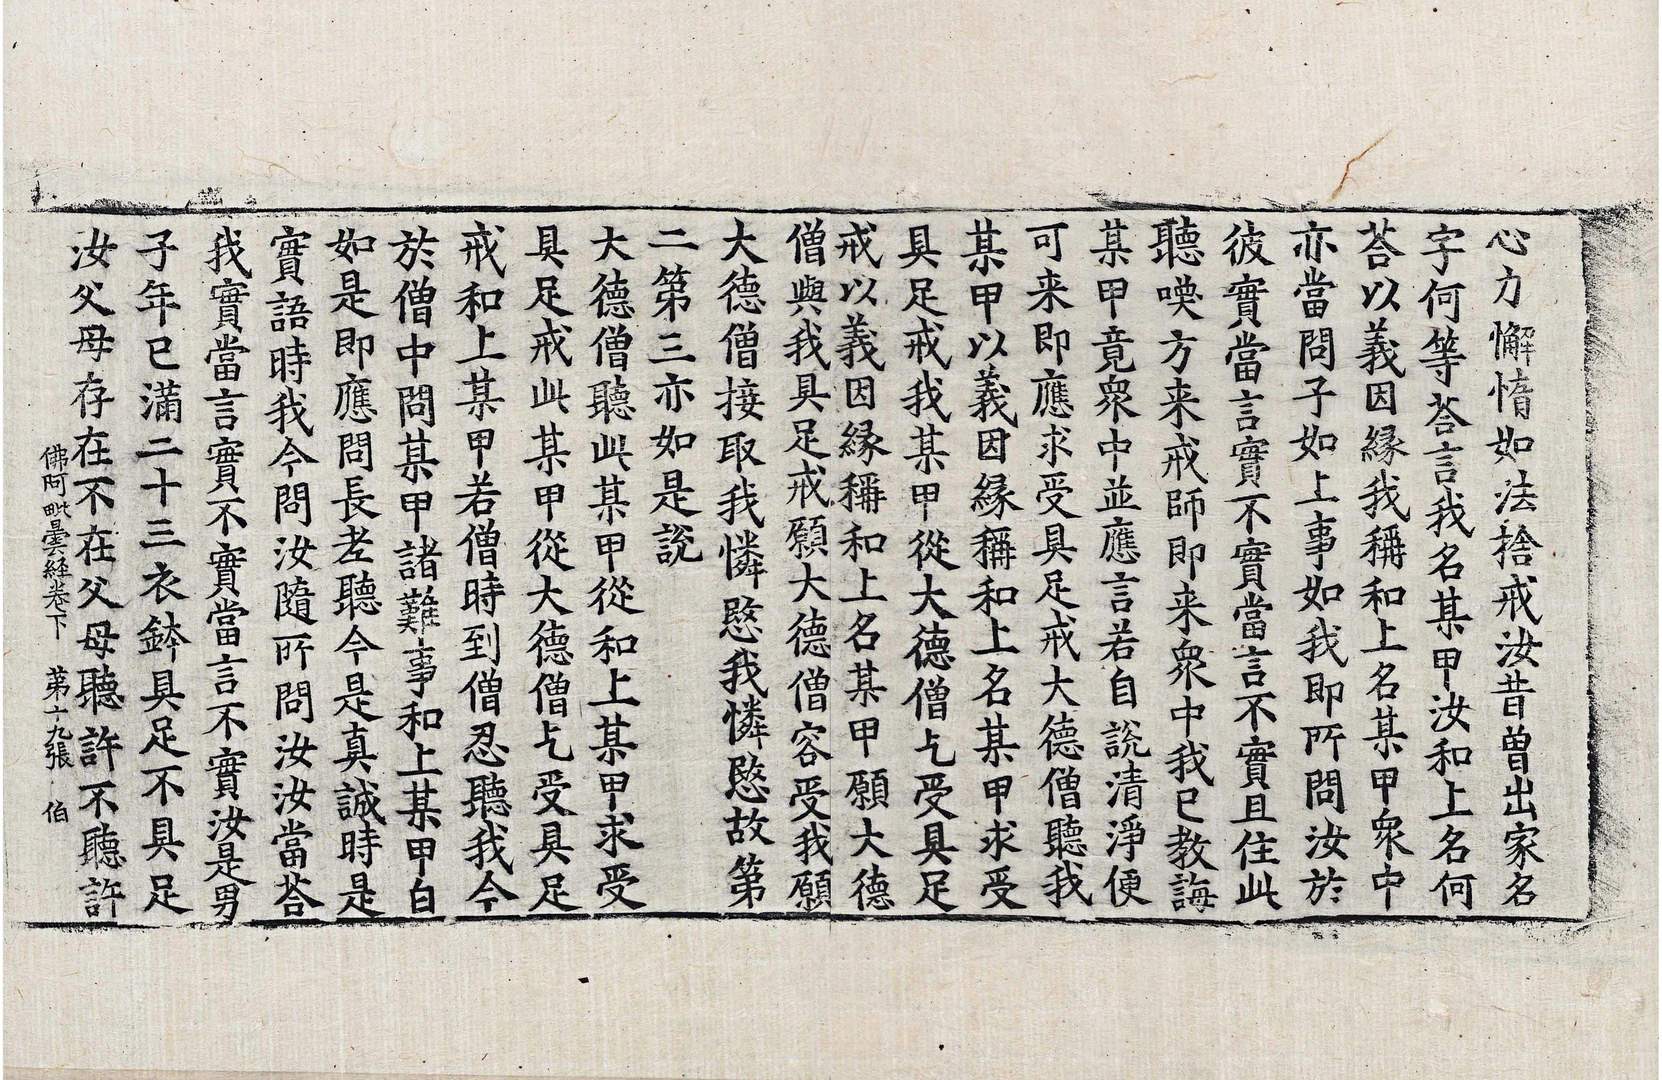 心力懈惰如法捨戒汝昔曽出家名
字何等荅言我名某甲汝和上名何
荅以義因縁我稱和上名某甲衆中
亦當問子如上事如我即所問汝於
彼實當言實不實當言不實且住此
聽喚方来戒師即来衆中我已教誨
某甲竟衆中並應言若自說清淨便
可来即應求受具足戒大德僧聽我
某甲以義因縁稱和上名某甲求受
具足戒我某甲從大德僧乞受具足
戒以義因縁稱和上名某甲願大德
僧與我具足戒願大德僧容受我願
大德僧接取我憐愍我憐愍故第
二第三亦如是說
大德僧聽此某甲從和上某甲求受
具足戒此某甲從大德僧乞受具足
戒和上某甲若僧時到僧忍聽我今
於僧中問某甲諸難事和上某甲白
如是即應問長老聽今是真誠時是
實語時我今問汝隨所問汝汝當荅
我實當言實不實當言不實汝是男
子年已滿二十三衣鉢具足不具足
汝父母存在不在父母聽許不聽許
佛阿毗曇経卷下　第十九張　伯